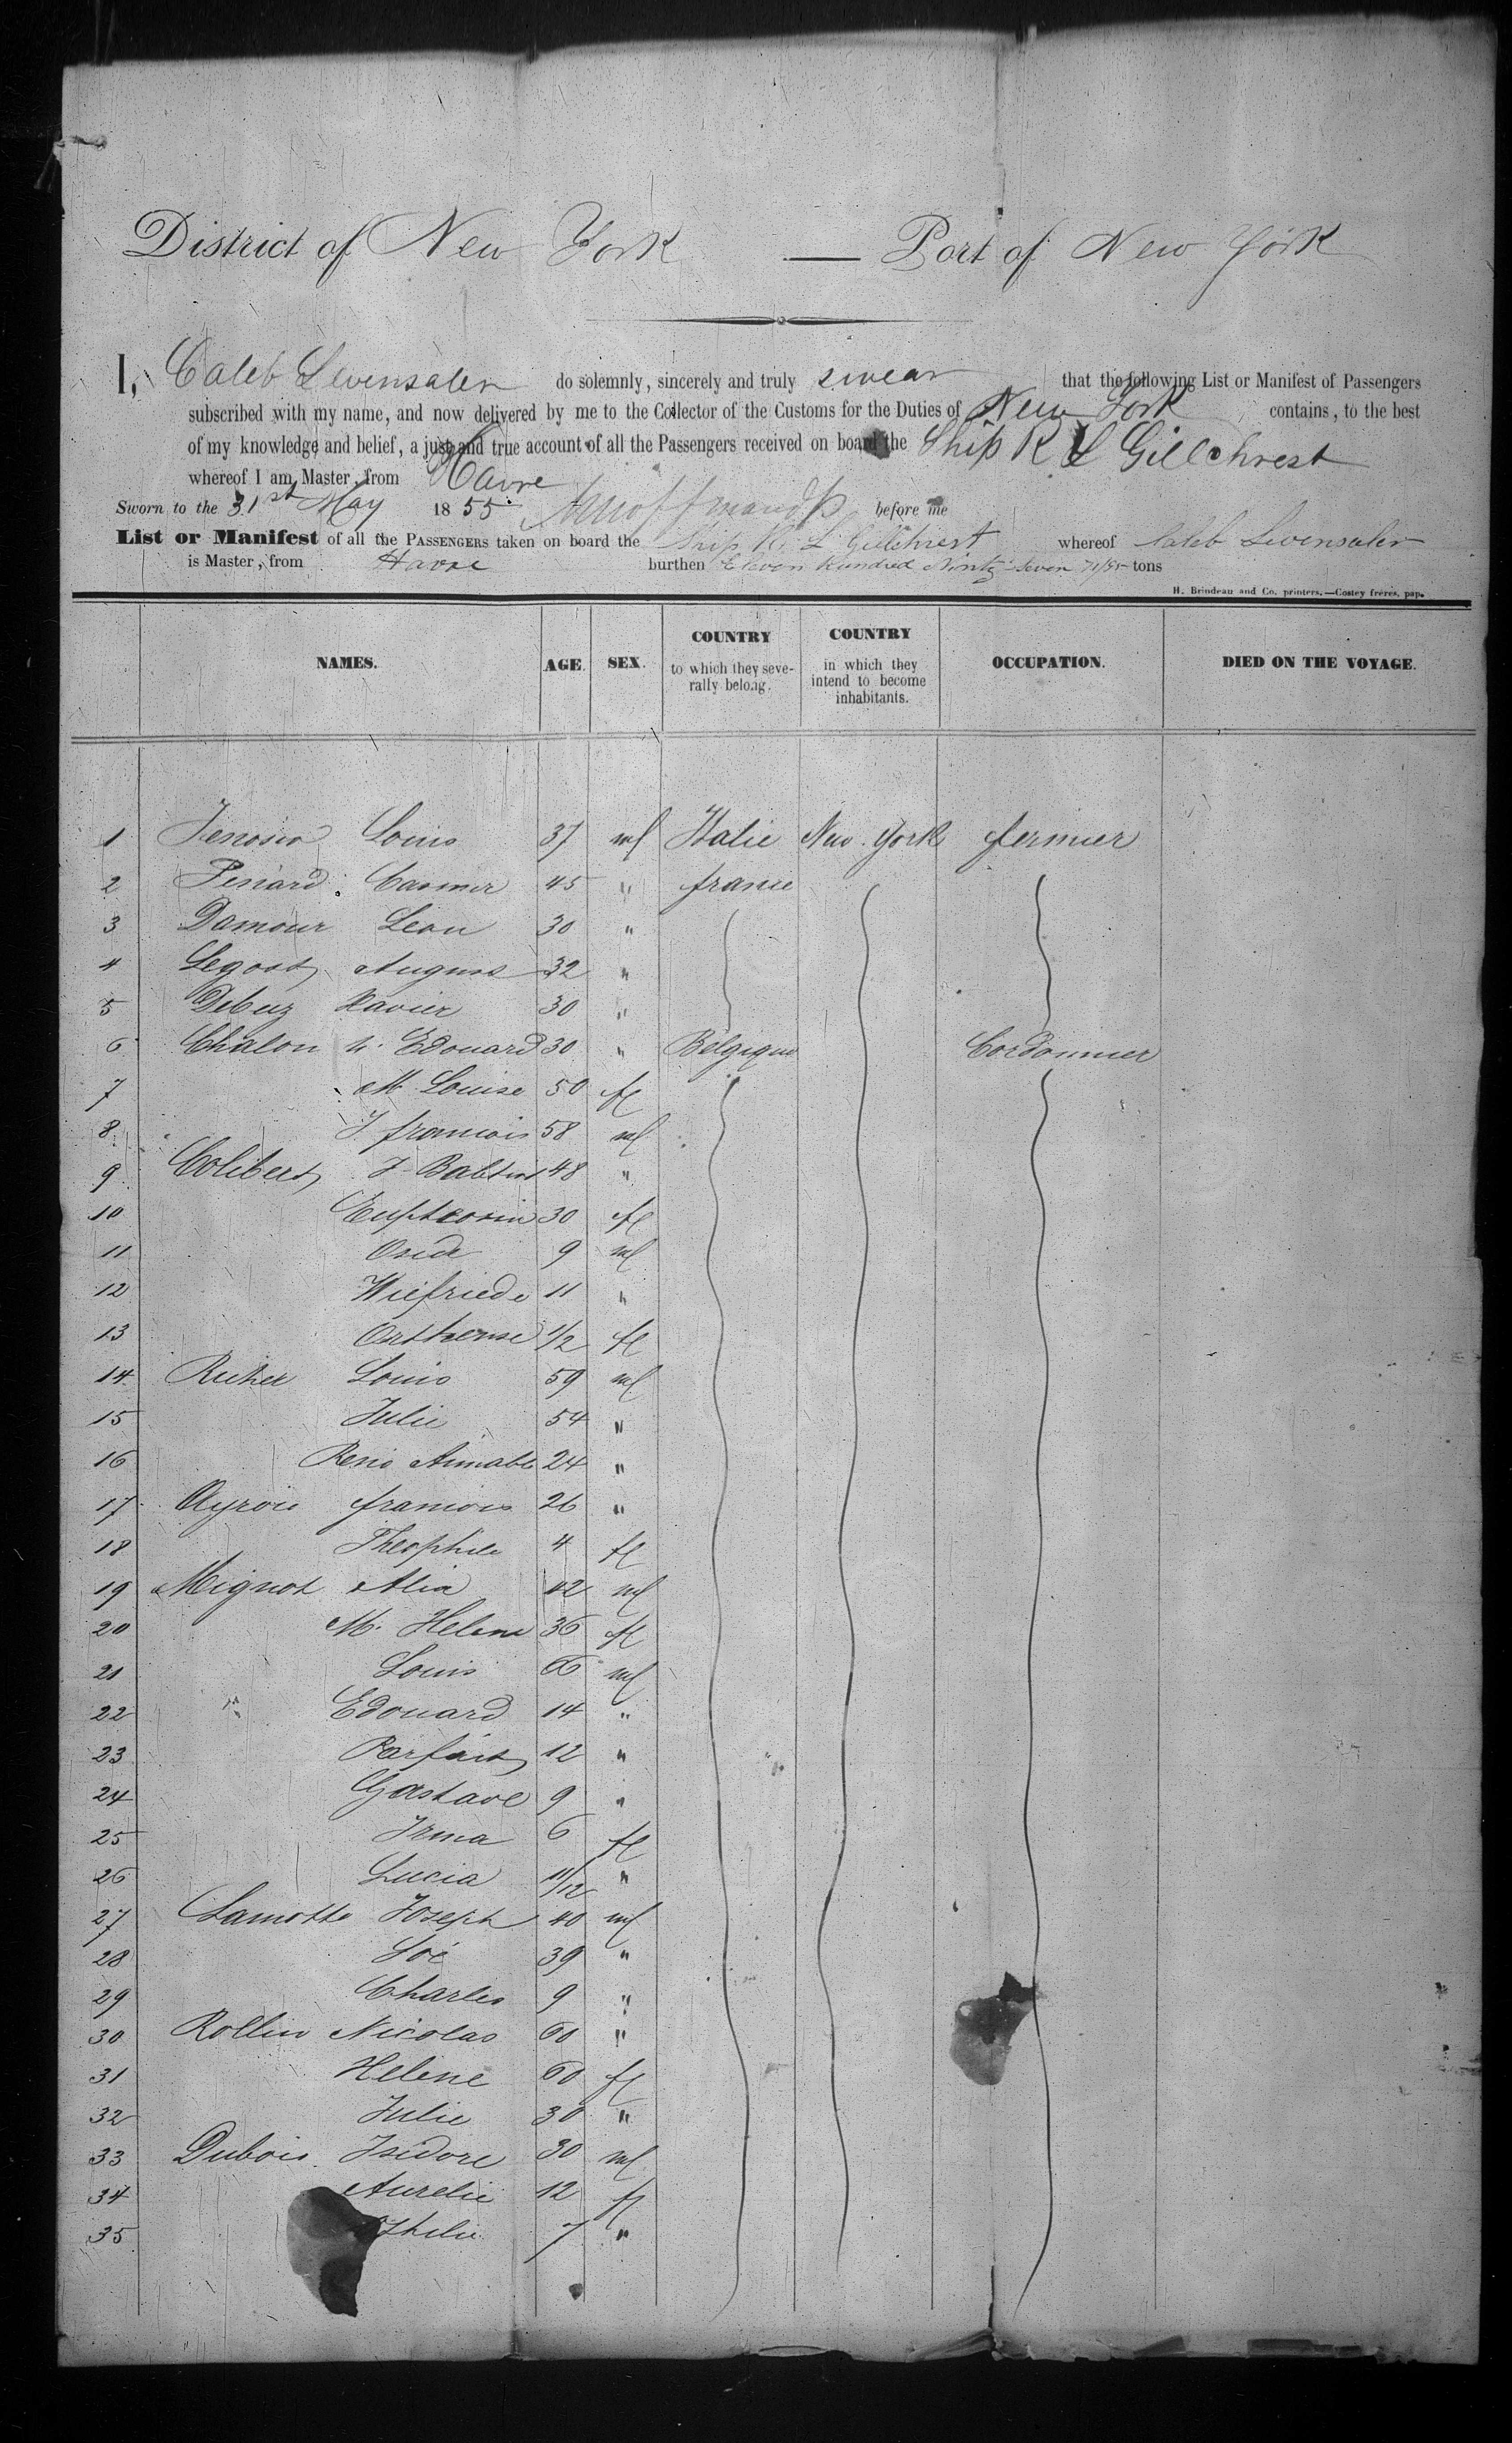 District of New York — Port of New York
I, Caleb Levensaler do solemnly, sincerely and truly swear that the following List or Manifest of Passengers
subscribed with my name, and now delivered by me to the Collector of the Customs for the Duties of New York contains, to the best
of my knowledge and belief, a just and true account of all the Passengers received on board the Ship R L Gillchrest
whereof I am Master, from Havre
Sworn to the 31st May 1855. before me
List or Manifest of all the PASSENGERS taken on board the Ship R. L Gillchrest whereof Caleb Levensaler
is Master, from Havre burthen Eleven Hundred Ninty Seven 71/95 tons
H. Brindeau and Co, printers.—Costey frères, pap.
NAMES. AGE. SEX. COUNTRY to which they severally belong. COUNTRY in which they intend to become inhabitants. OCCUPATION. DIED ON THE VOYAGE.
1 Louis 37 ml Italie New York fermier
2 Penard Casmir 45 " france
3 Damour Leon 30 "
4 Legost August 32 "
5 Xavier 30 "
6 Chalon Edouard 30 " Belgique Cordonnier
7 M Louise 50 fl
8 J. francois 58 ml
9 Colibert J Babtist 48 "
10 30 fl
11 9 ml
12 Wilfriede 11 "
13 Orthense 1/2 fl
14 Louis 59 ml
15 Julie 54 "
16 Aimable 24 "
17 francois 26 "
18 Theophile 4 fl
19 Mignot 42 ml
20 M. Helene 36 fl
21 Louis 66 ml
22 Edouard 14 "
23 Parfait 12 "
24 Gustave 9 "
25 Irma 6 fl
26 Lucia 11/12 "
27 Lamotte Joseph 40 ml
28 39 "
29 Charles 9 "
30 Rollin Nicolas 60 "
31 Helene 60 fl
32 Julie 30 "
33 Dubois Isidore 30 ml
34 Aurelie 12 fl
35 7 "